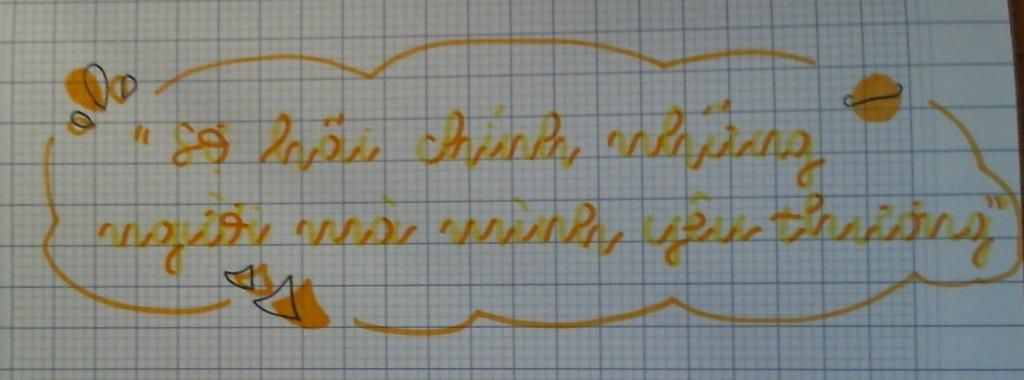 "Sợ hãi chính những
người mà mình yêu thương"